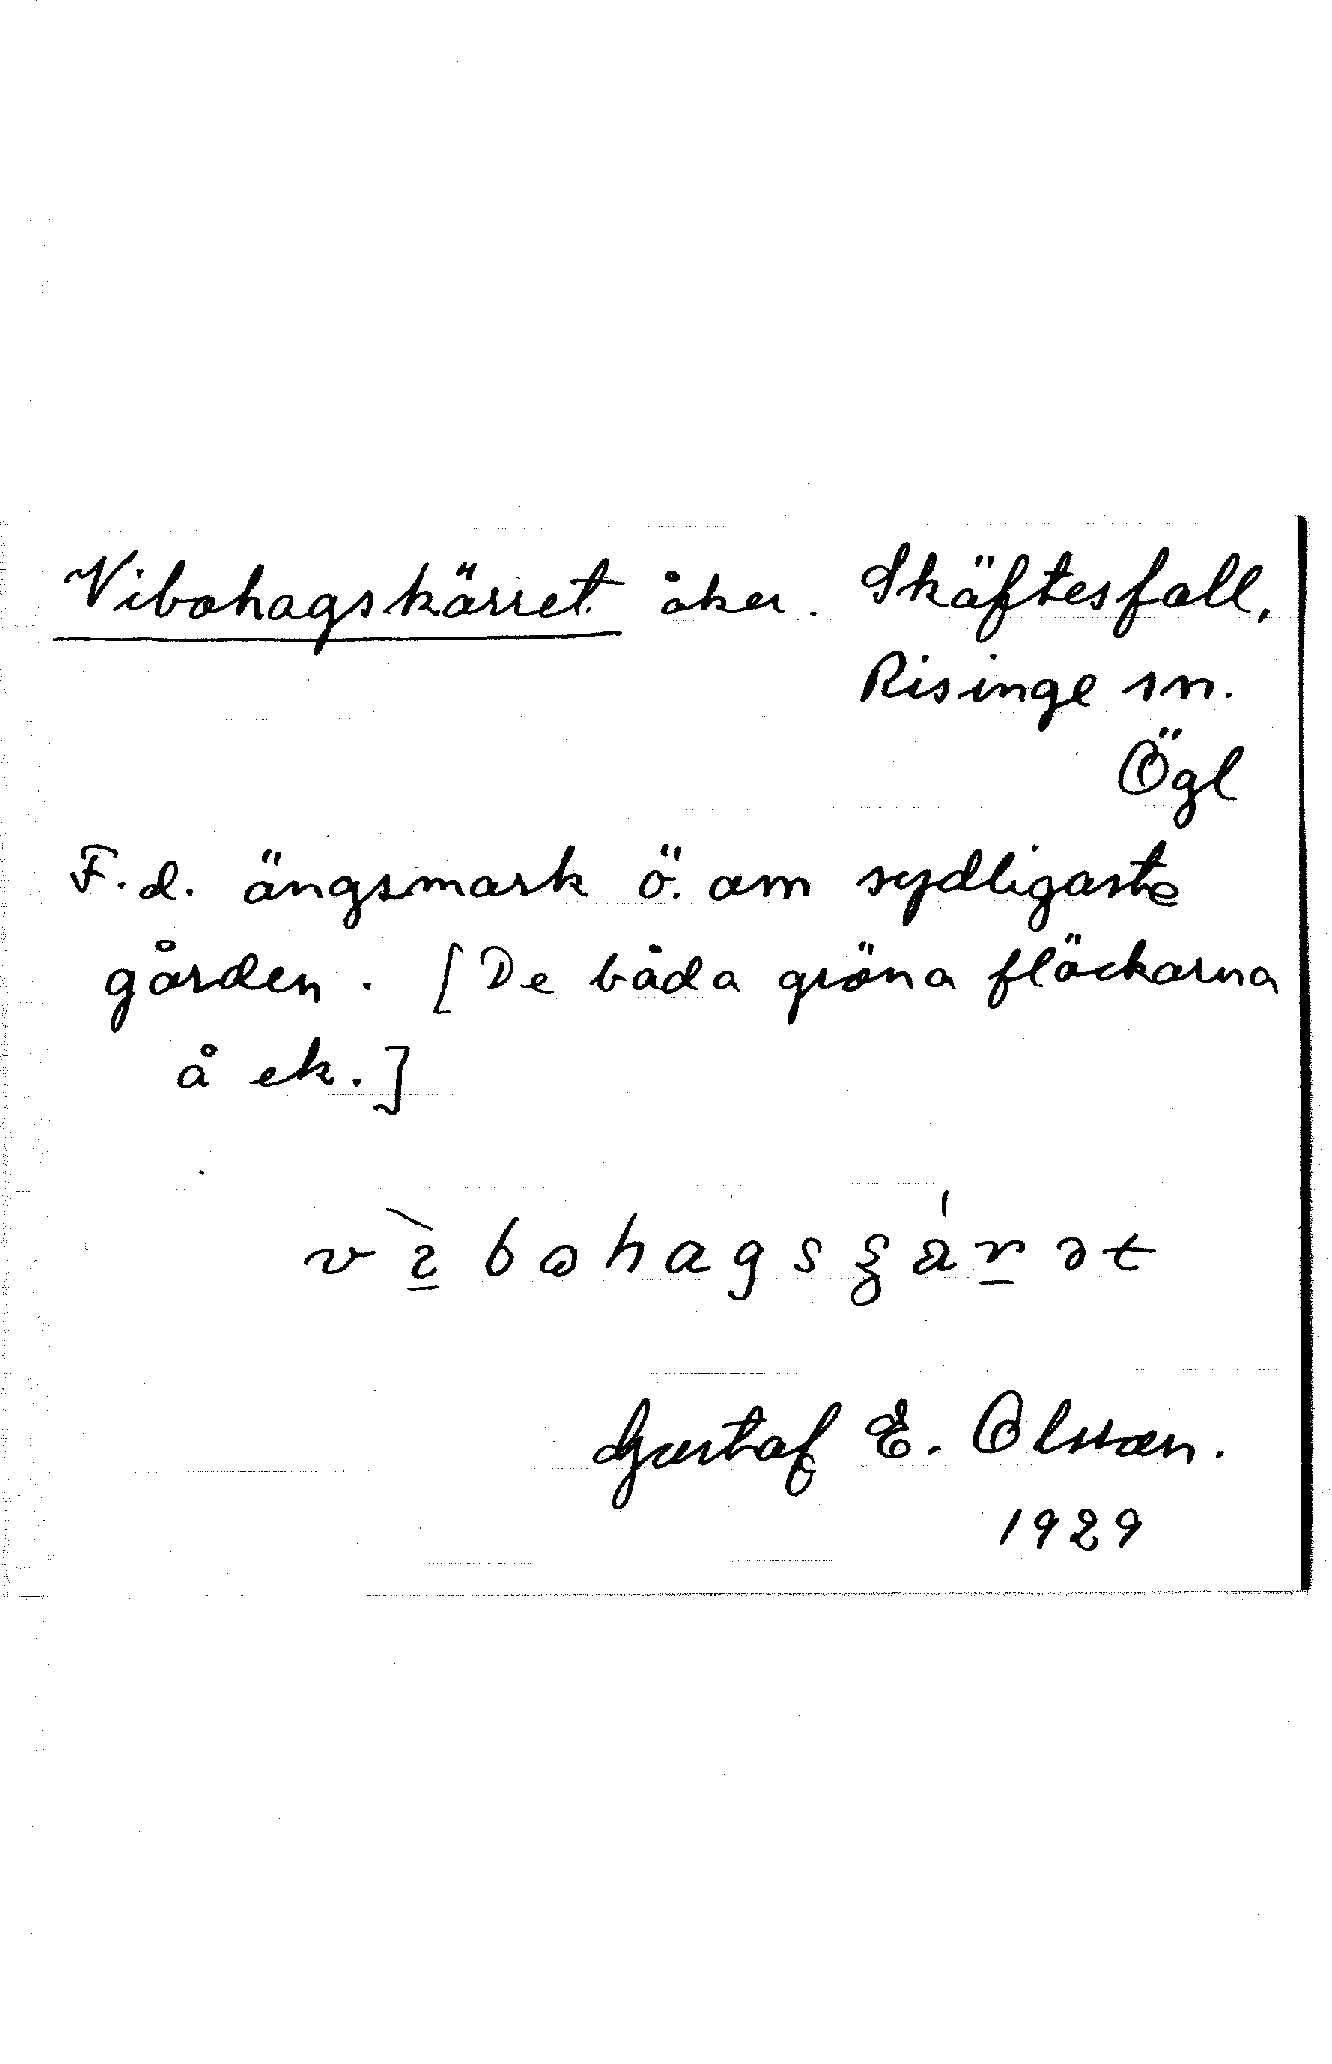 Vibohagskärret åker. Skäftesfall,
Risinge sn.
Ögl
F.d. ängsmark ö. om sydligaste
gården. [De båda gröna fläckarna
å ek.]
Gustaf E. Olsson.
1929